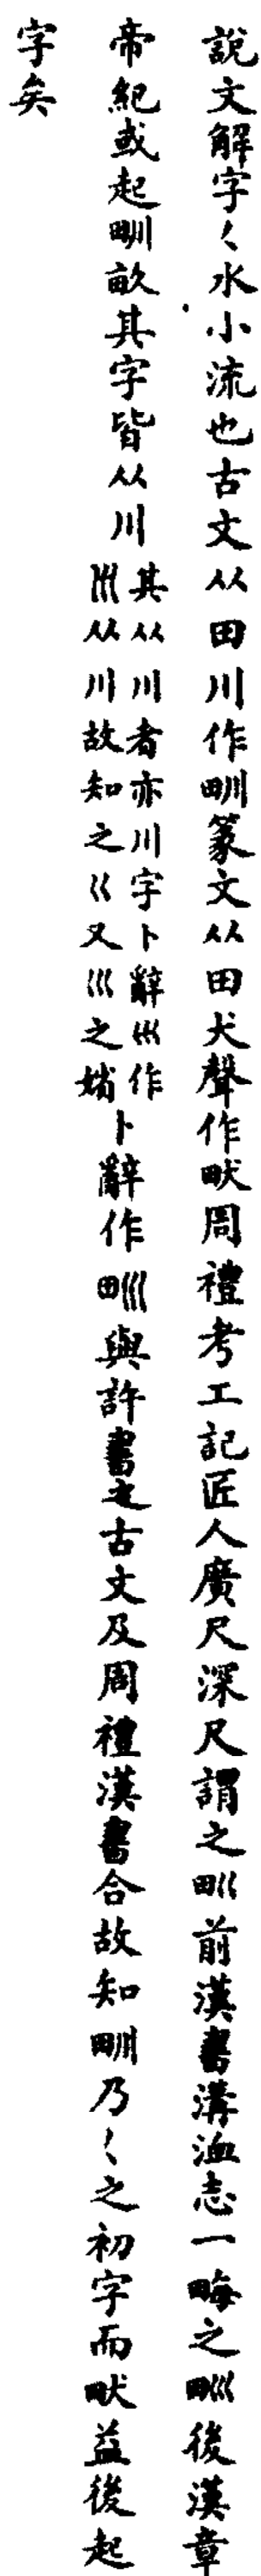 說文解字く水小流也古文从田川作甽篆文从田犬聲作畎周禮考工記匠人廣尺深尺謂之𤰕前漢書溝洫志一畮之甽後漢章
帝紀或起甽畝其字皆从川
其从川者亦川字卜辭巛作
𝍢从川故知之巜又巛之婧
卜辭作甽與許書之古文及周禮漢書合故知甽乃く之初字而畎益後起
字矣